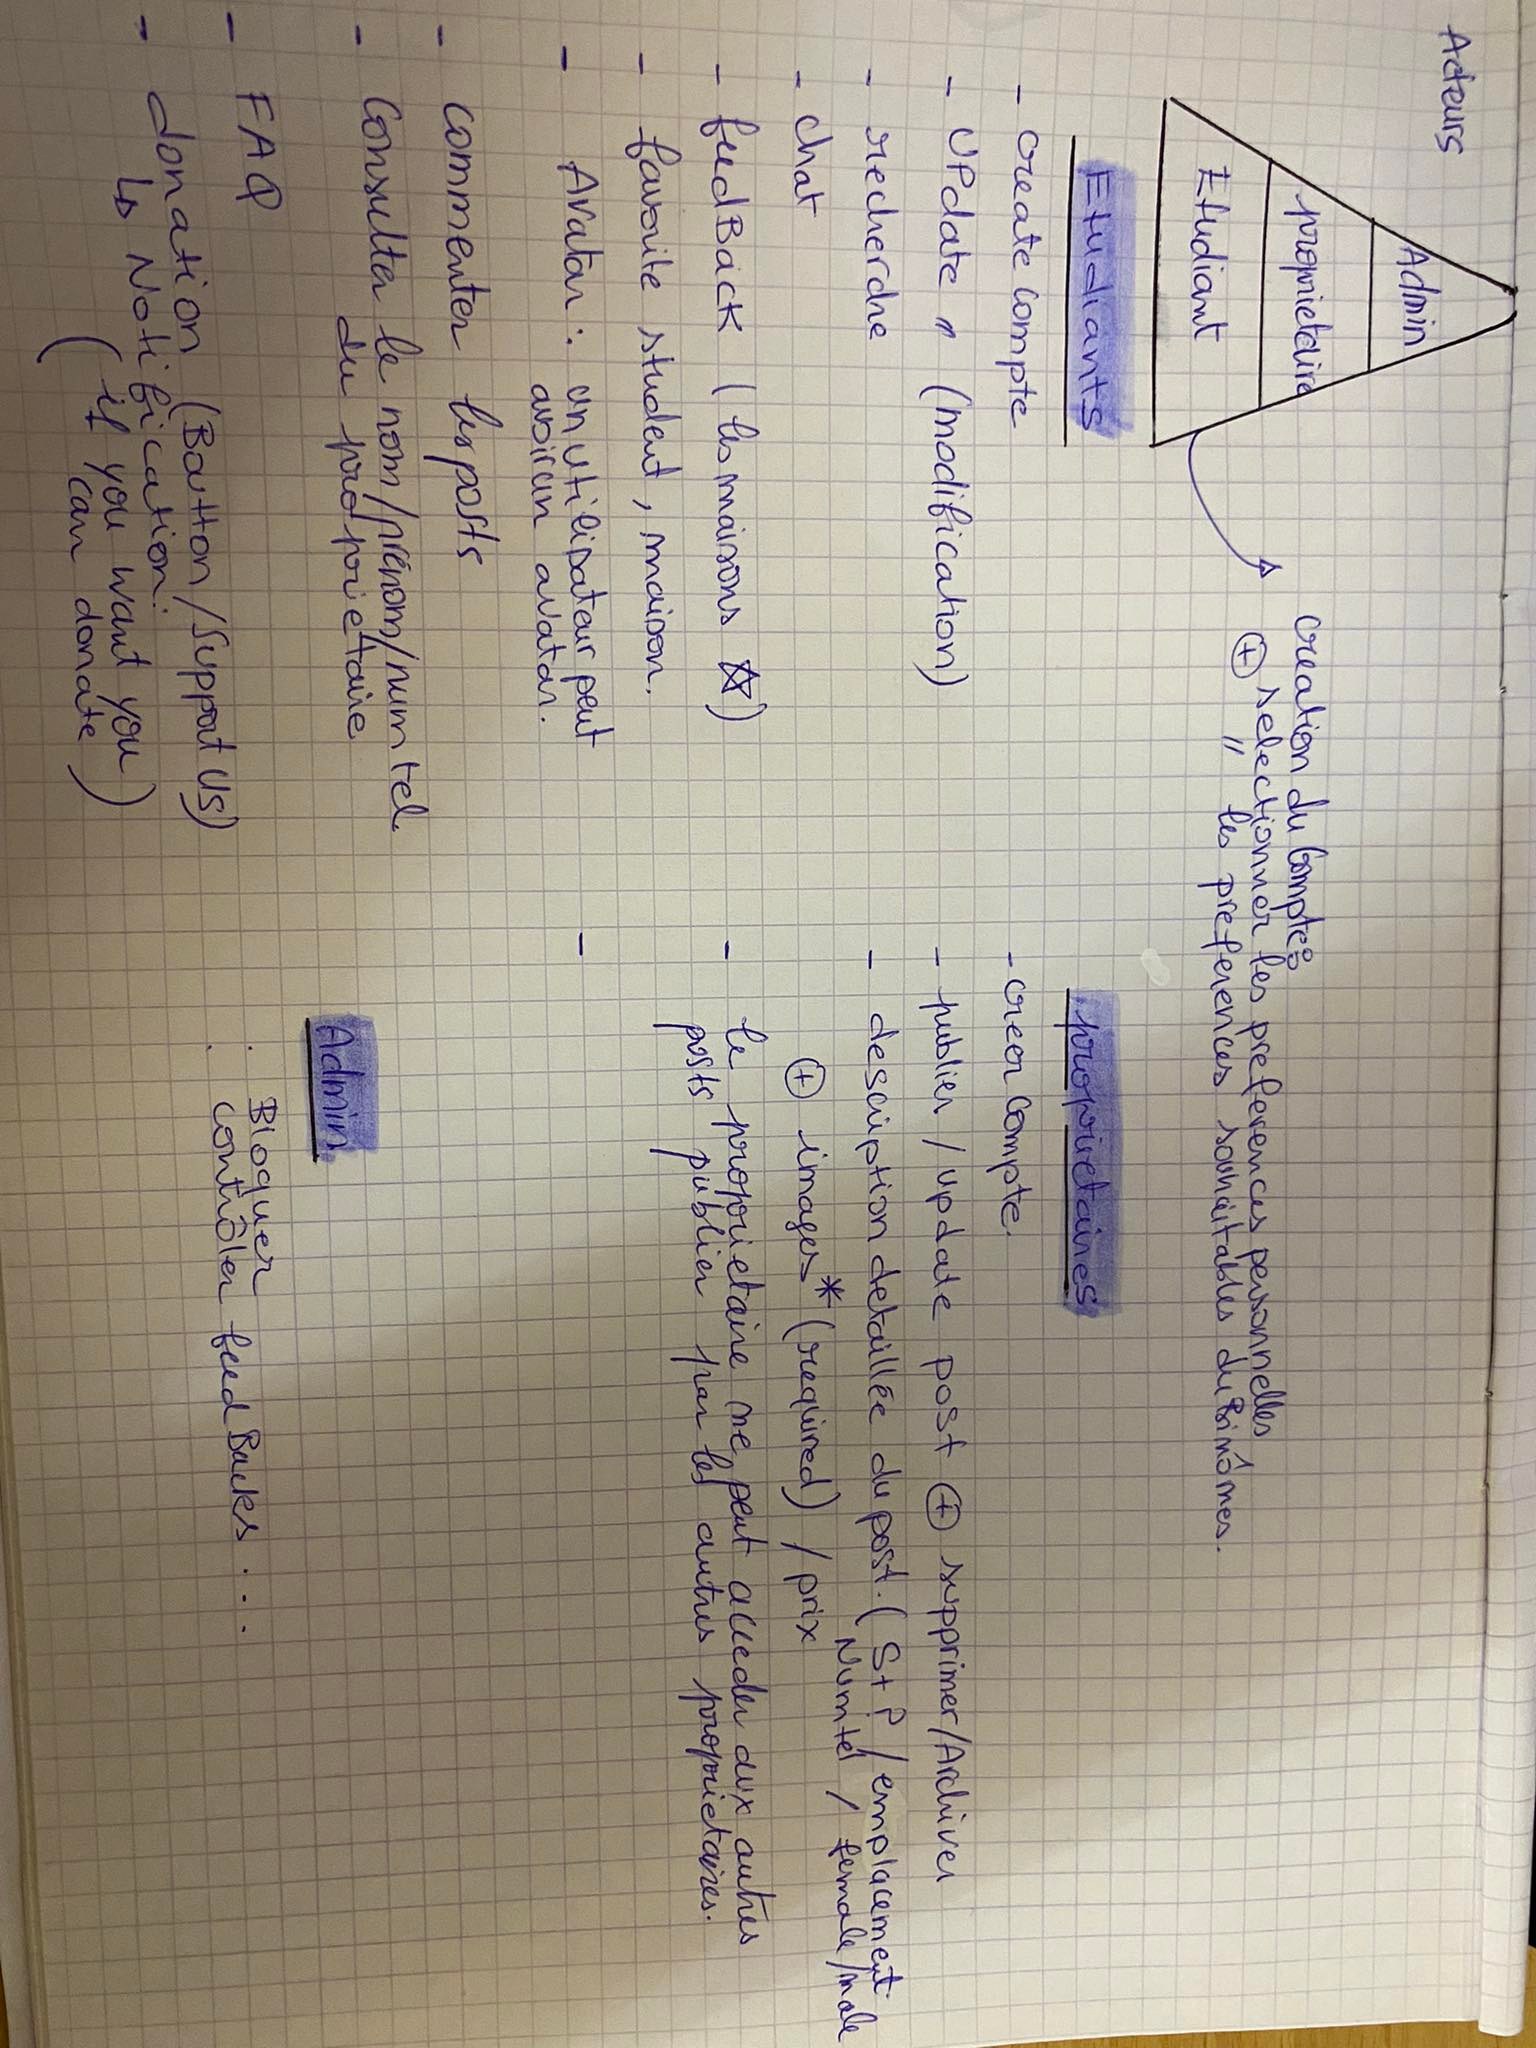 Acteurs
Admin
proprietaire
Etudiant
creation du Compte:
⊕ selectionner les preferences personnelles,
" les preferences souhaitables du Binômes.
Etudiants
- create compte
- UPdate " (modification)
- recherche
- chat
- feedBack (les maisons ☆)
- favorite student, maison.
- Avatar : un utilisateur peut
avoir un avatar.
- commenter les posts
- Consulter le nom/prénom/num tel
du proprietaire
- FAQ
- donation (Boutton/Support Us)
↳ Notification:
(if you want you
can donate)
proprietaires
- creer compte.
- publier / update post ⊕ supprimer/Archiver
- description detaillée du post. ( S+? / emplacement
Numtel / female/male
⊕ images* (required) / prix
- le proprietaire ne peut acceder aux autres
posts publier par les autres proprietaires.
-
Admin
. Bloquer
. contrôler feedBacks ...